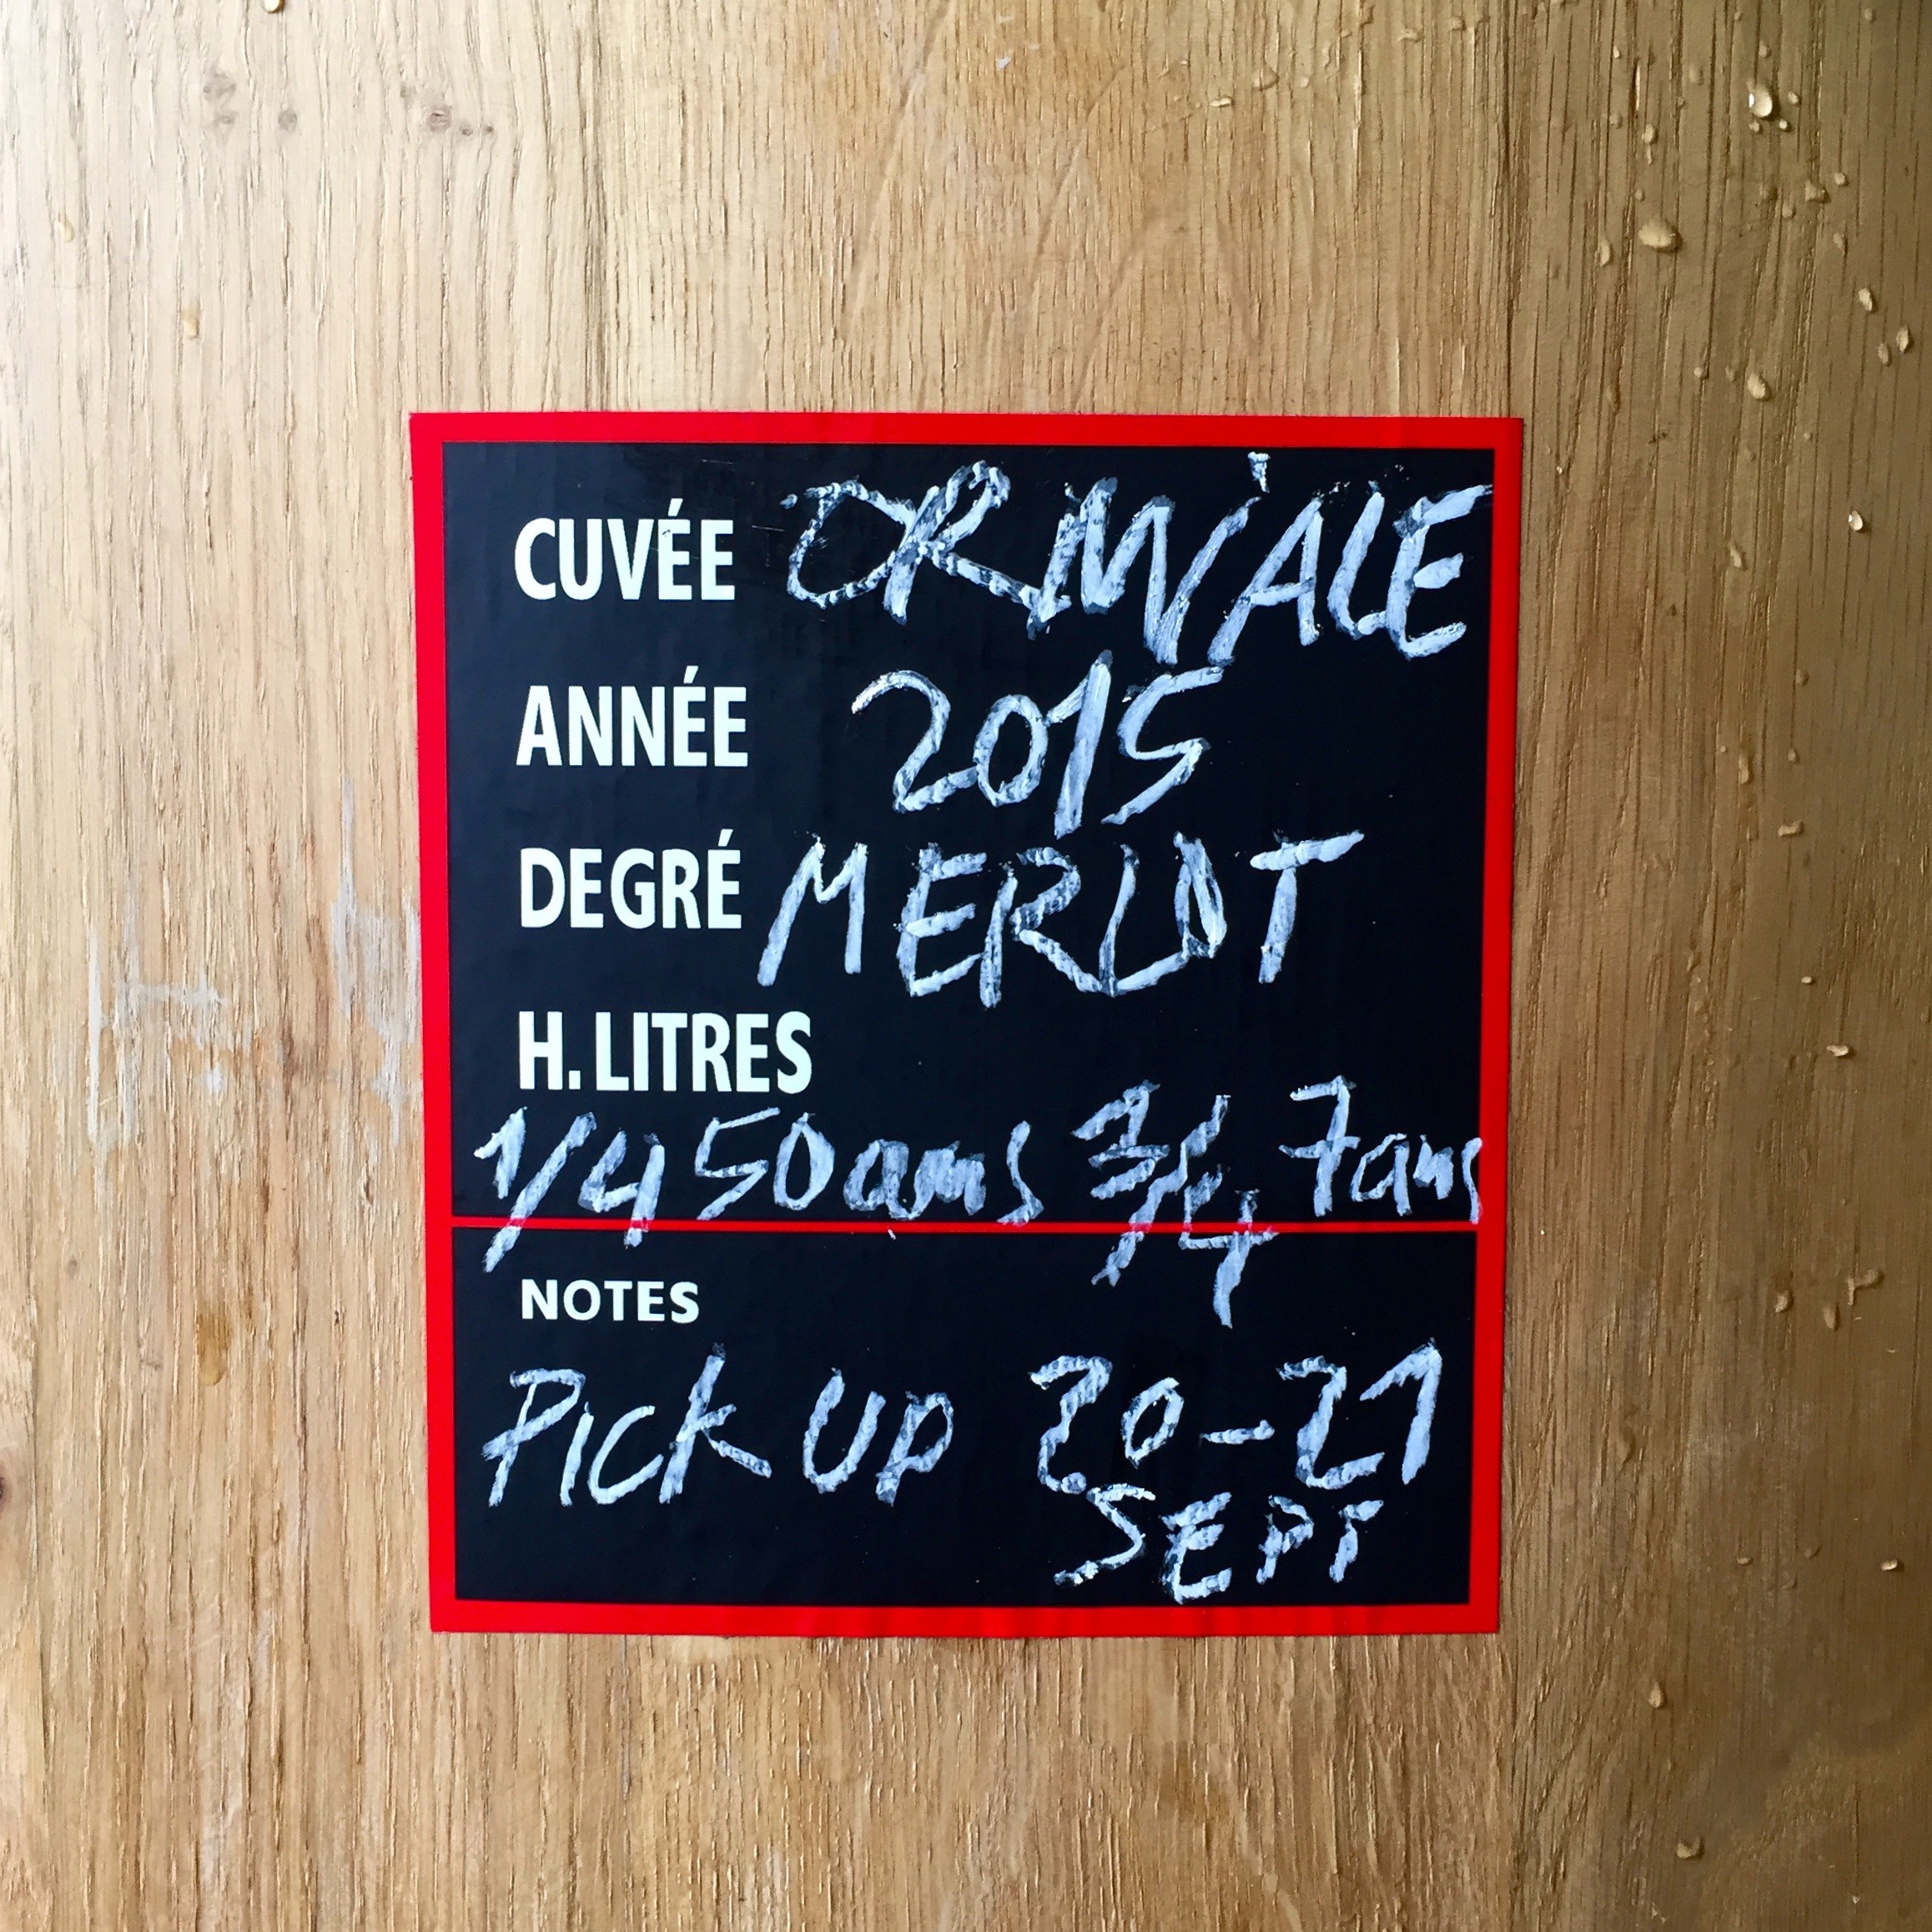 CUVÉE ORMiALE
ANNÉE 2015
DEGRÉ MERLOT
H. LITRES
1/4 50 ans 3/4 7 ans
NOTES
PiCK UP 20-21
SEPT